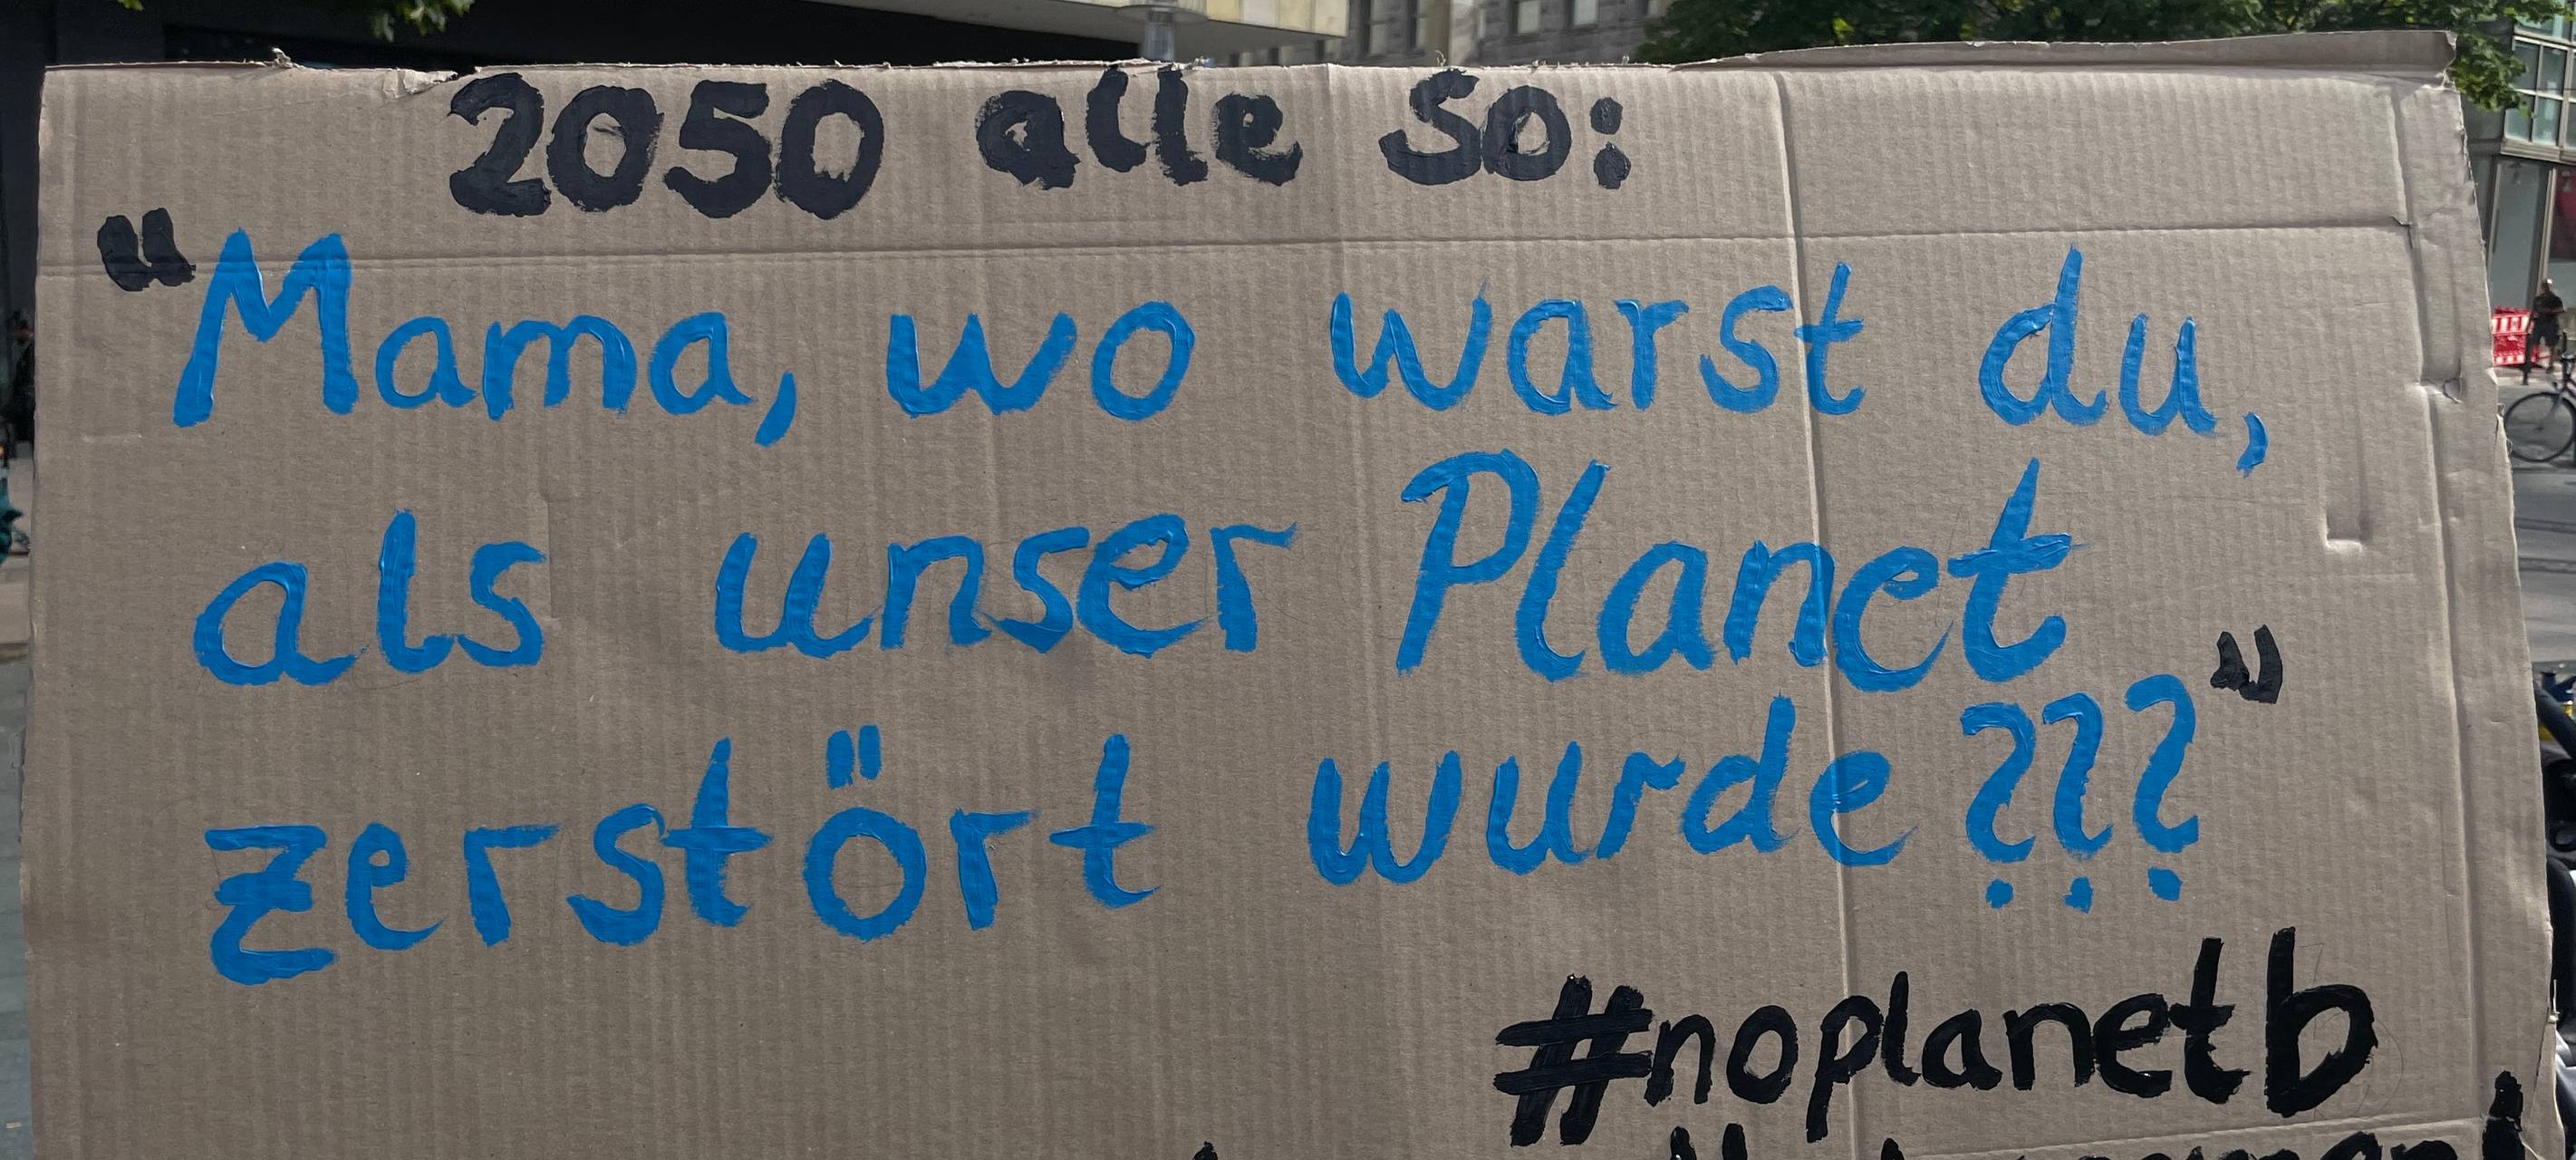 2050 alle so:
“Mama, wo warst du,
als unser Planet
zerstört wurde???”
#noplanetb